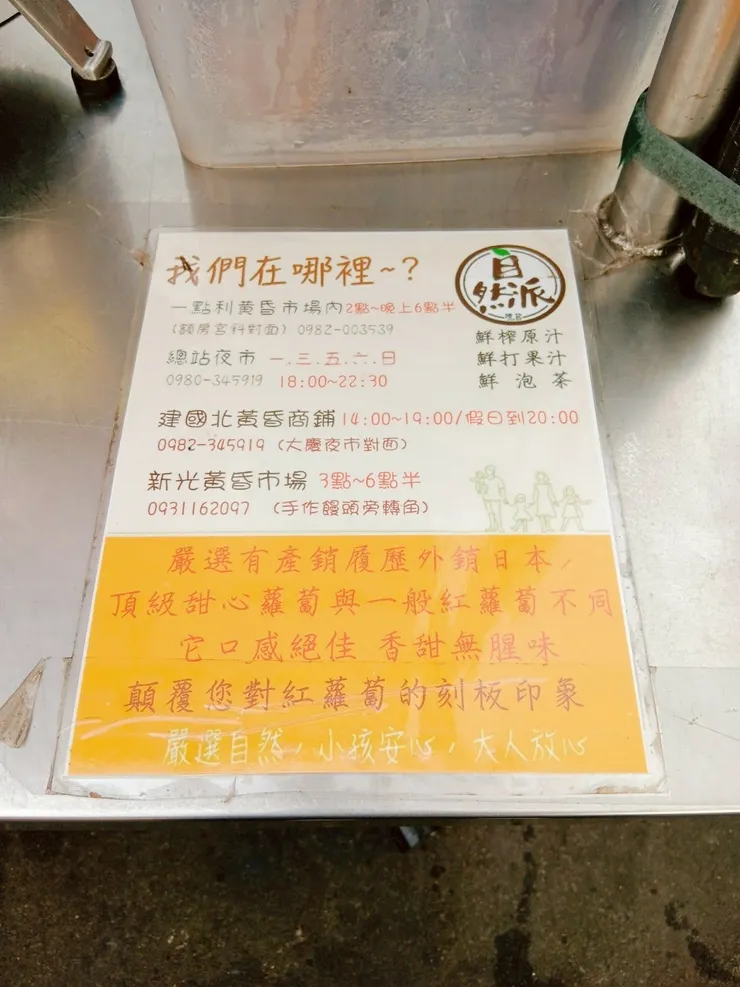 我們在哪裡~？
自然派
一點利黃昏市場內2點~晚上6點半
(額房宮科對面) 0982-003539
鮮榨原汁
鮮打果汁
鮮泡茶
總站夜市 一.三.五.六.日
0980-345919 18:00~22:30
建國北黃昏商鋪14:00~19:00/假日到20:00
0982-345919 (大慶夜市對面)
新光黃昏市場 3點~6點半
0931162097 (手作饅頭旁轉角)
嚴選有產銷履歷外銷日本，
頂級甜心蘿蔔與一般紅蘿蔔不同
它口感絕佳 香甜無腥味
顛覆您對紅蘿蔔的刻板印象
嚴選自然，小孩安心，大人放心